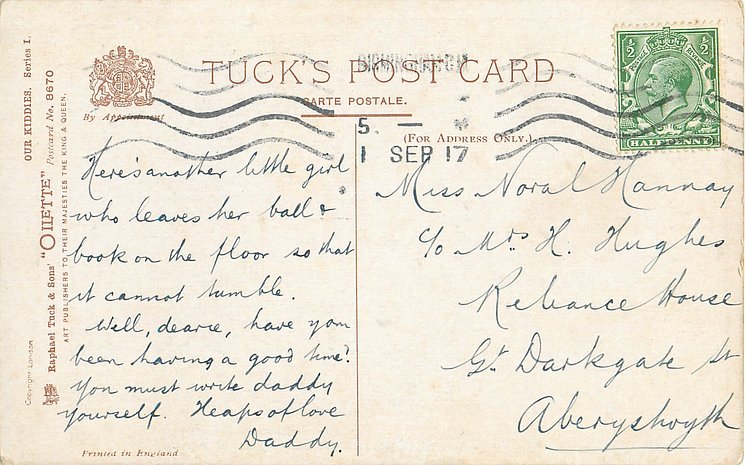 TUCK'S POST CARD
CARTE POSTALE.
By Appointment
(FOR ADDRESS ONLY.)
5 –
1 SEP 17
½ ½
HALFPENNY
OUR KIDDIES. Series I.
Postcard No. 8670
Raphael Tuck & Sons' "OILETTE"
ART PUBLISHERS TO THEIR MAJESTIES THE KING & QUEEN.
Copyright London
Here's another little girl
who leaves her ball &
book on the floor so that
it cannot tumble.
Well, dearie, have you
been having a good time?
You must write daddy
yourself. Heaps of love
Daddy.
Printed in England
Miss Noral Hannay
c/o Mrs H. Hughes
Reliance House
Gt Darkgate St
Aberystwyth